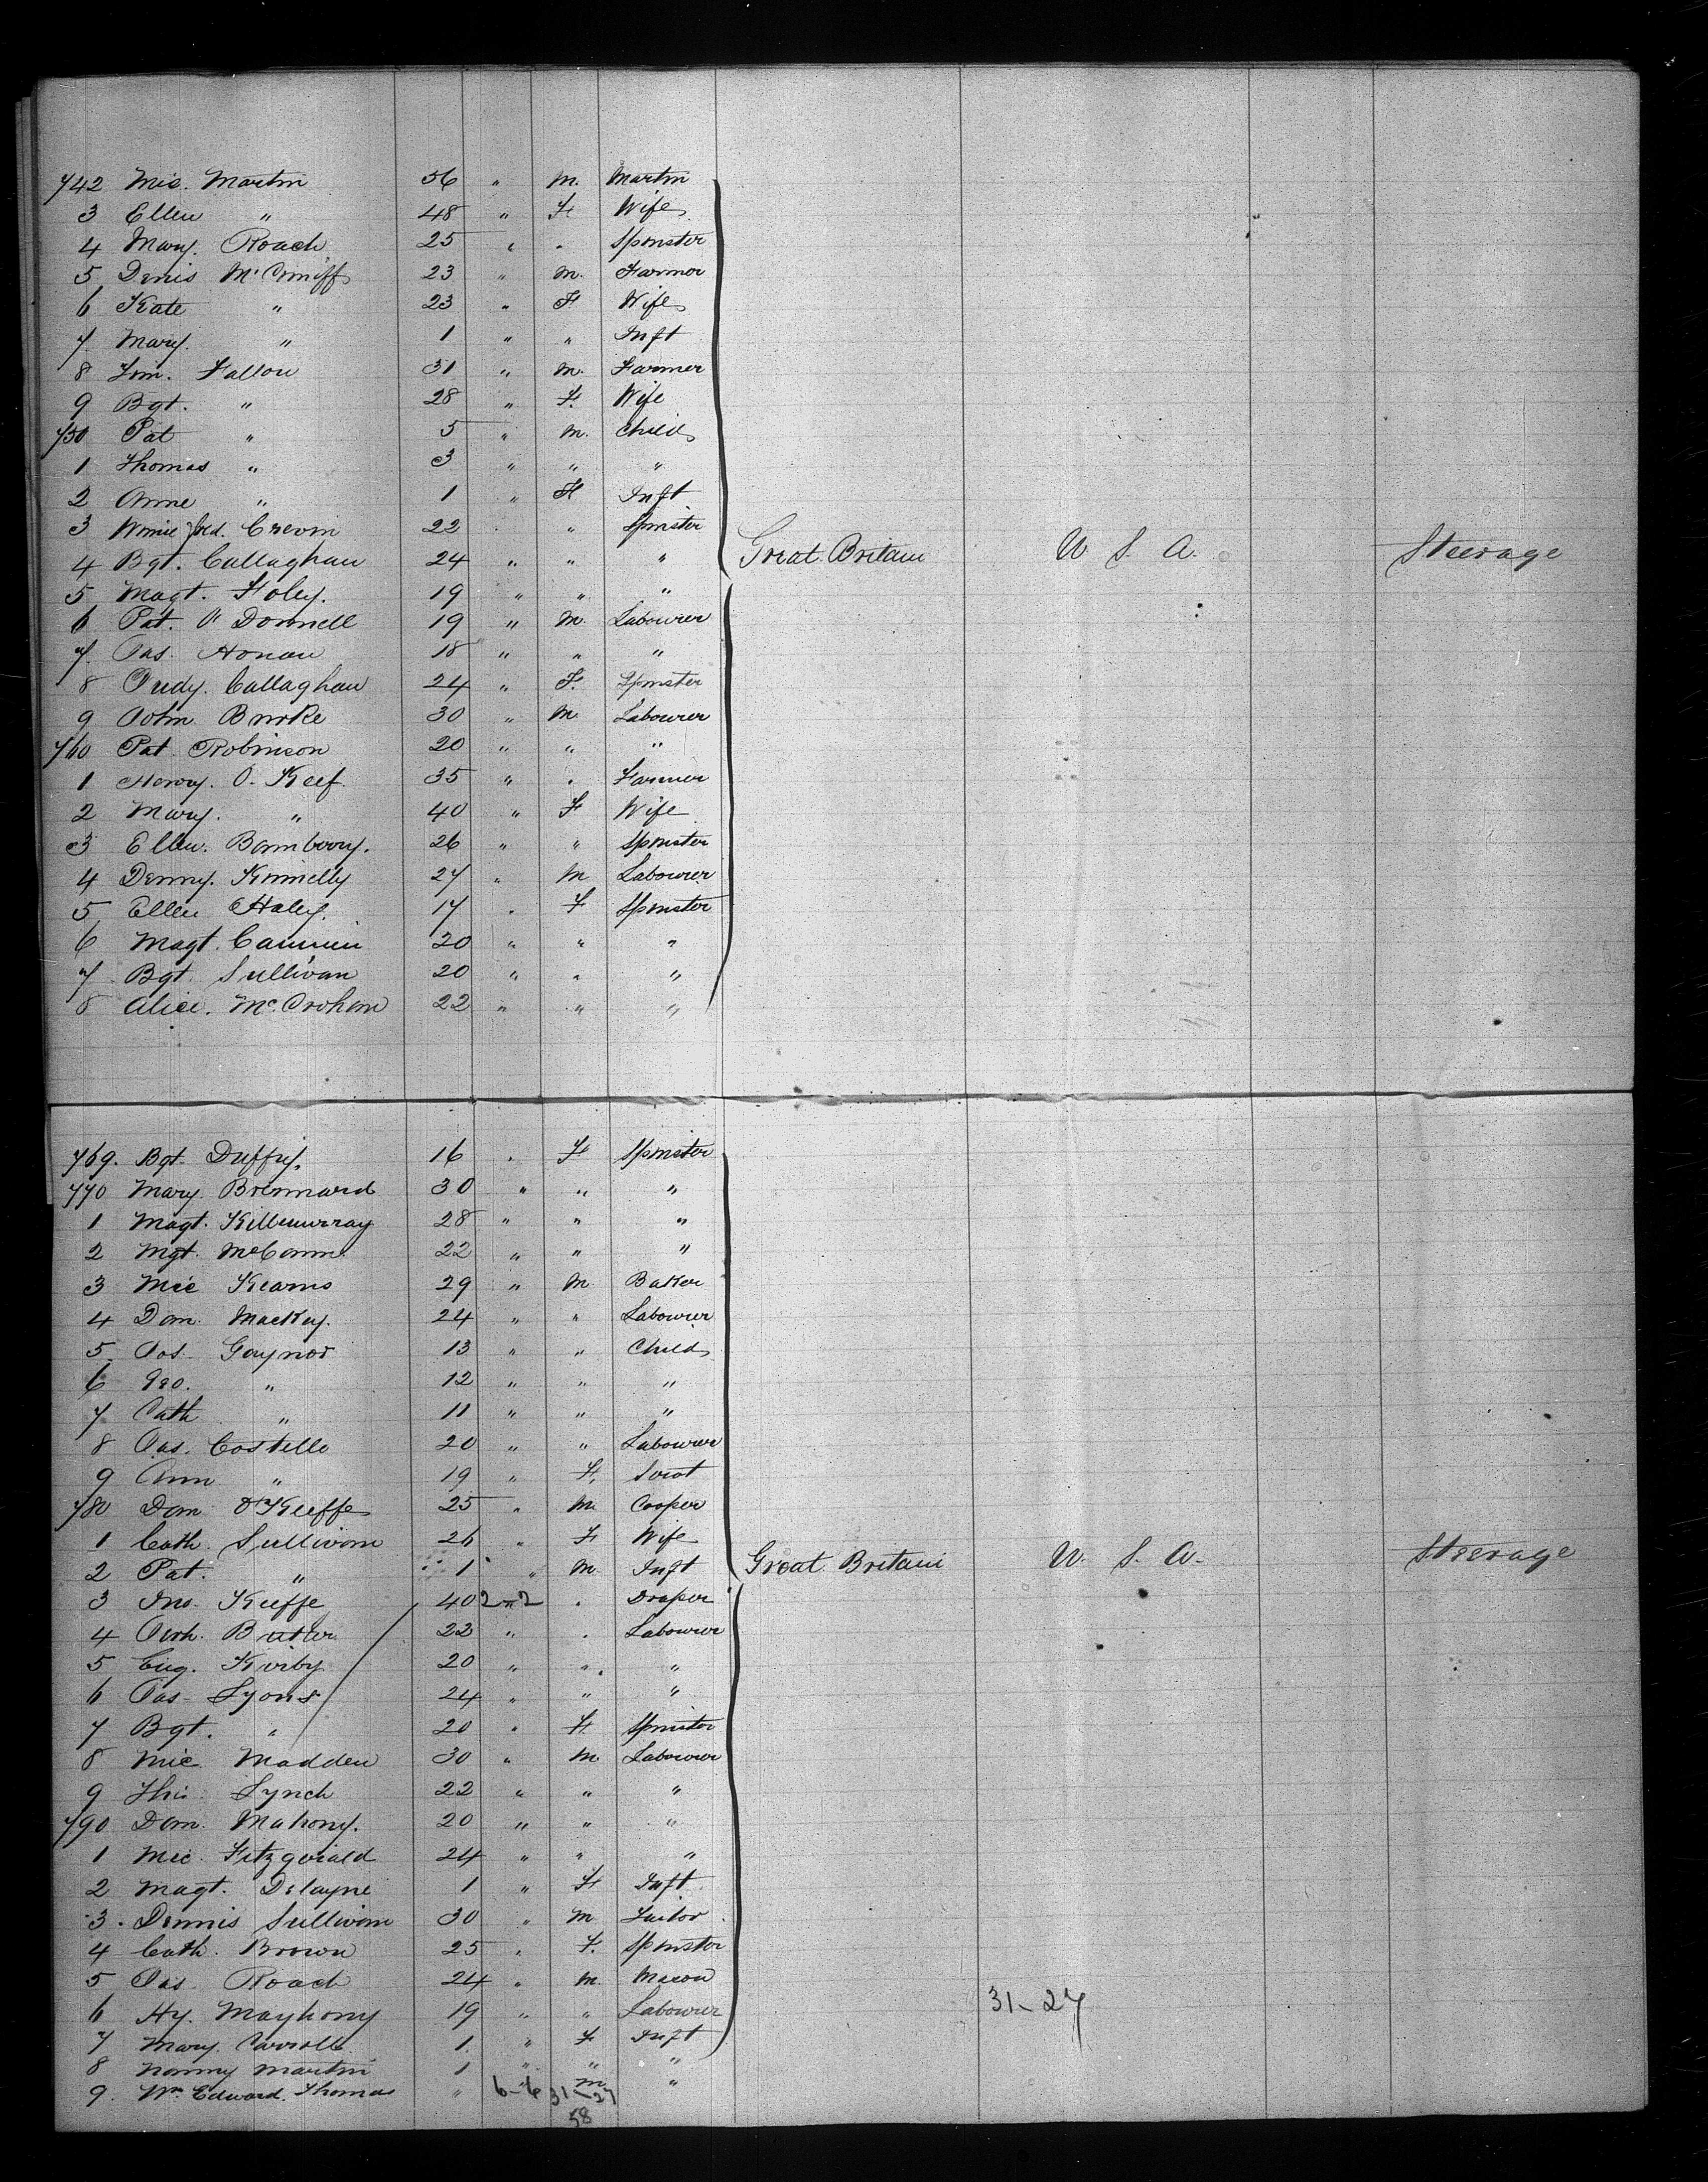 742 Mic. Martin 56 " M. Martin
3 Ellen " 48 " F Wife
4 Mary. Roach 25 " " Spinster
5 Denis McConiff 23 " M. Farmer
6 Kate " 23 " F Wife
7 Mary. " 1 " " Inft
8 Tim. Fallon 31 " M. Farmer
9 Bgt. " 28 " F. Wife
750 Pat " 5 " M. Child
1 Thomas " 3 " " "
2 Anne " 1 " F Inft
3 Winie fred. 22 " Spinster
4 Bgt. Callaghan 24 " " " Great Britain U. S. A. Steerage
5 Magt. Foley. 19 " " "
6 Pat. O'Donnell 19 " M. Labourer
7. Jas. Honan 18 " " "
8 Judy. Callaghan 24 " F. Spinster
9 John Burke 30 " M. Labourer
760 Pat Robinson 20 " " "
1 Henry. O. Keef. 35 " " Farmer
2 Mary. " 40 " F Wife
3 Ellen. Bamberry. 26 " " Spinster
4 Denny. Kinnelly 27 " M Labourer
5 Ellen Haley. 17 " F Spinster
6 Magt. 20 " " "
7 Bgt. Sullivan 20 " " "
8 Alice. McCrohan 22 " " "
769. Bgt. Duffy. 16 " F Spinster
770 Mary Brennard 30 " " "
1 Magt. Killmurray 28 " " "
2 Mgt. McCann 22 " " "
3 Mic Kearns 29 " M Baker
4 Dan. Mackey. 24 " " Labourer
5 Jos. Gaynor 13 " " Child
6 Geo. " 12 " " "
7 Cath " 11 " " "
8 Jas. Costello 20 " " Labourer
9 Ann " 19 " F. Svrat
780 Dan O'Keeffe 25 " M. Cooper
1 Cath. Sullivan 26 " F Wife
2 Pat. " 1 " M Inft Great Britain U. S. A. Steerage
3 Jno. Keeffe 40 2-2 " Draper
4 Butler 22 " " Labourer
5 Eug. Kirby 20 " " "
6 Jas. Lyons 24 " " "
7 Bgt. " 20 " F. Spinster
8 Mic Madden 30 " M. Labourer
9 Lynch 22 " " "
790 Dan. Mahony. 20 " " "
1 Mic. Fitzgerald 24 " " "
2 Magt. Delayne 1 " F Inft
3. Dennis Sullivan 30 " M Tailor
4 Cath. Brown 25 " F. Spinster
5 Jas. Roach 24 " M. Mason
6 Hy. Mayhony 19 " " Labourer 31-27
7 Mary. Carroll 1 " F Inft
8 Nanny Martin 1 " " "
9. Wm Edward. Thomas " " M "
6-6 31-27
58